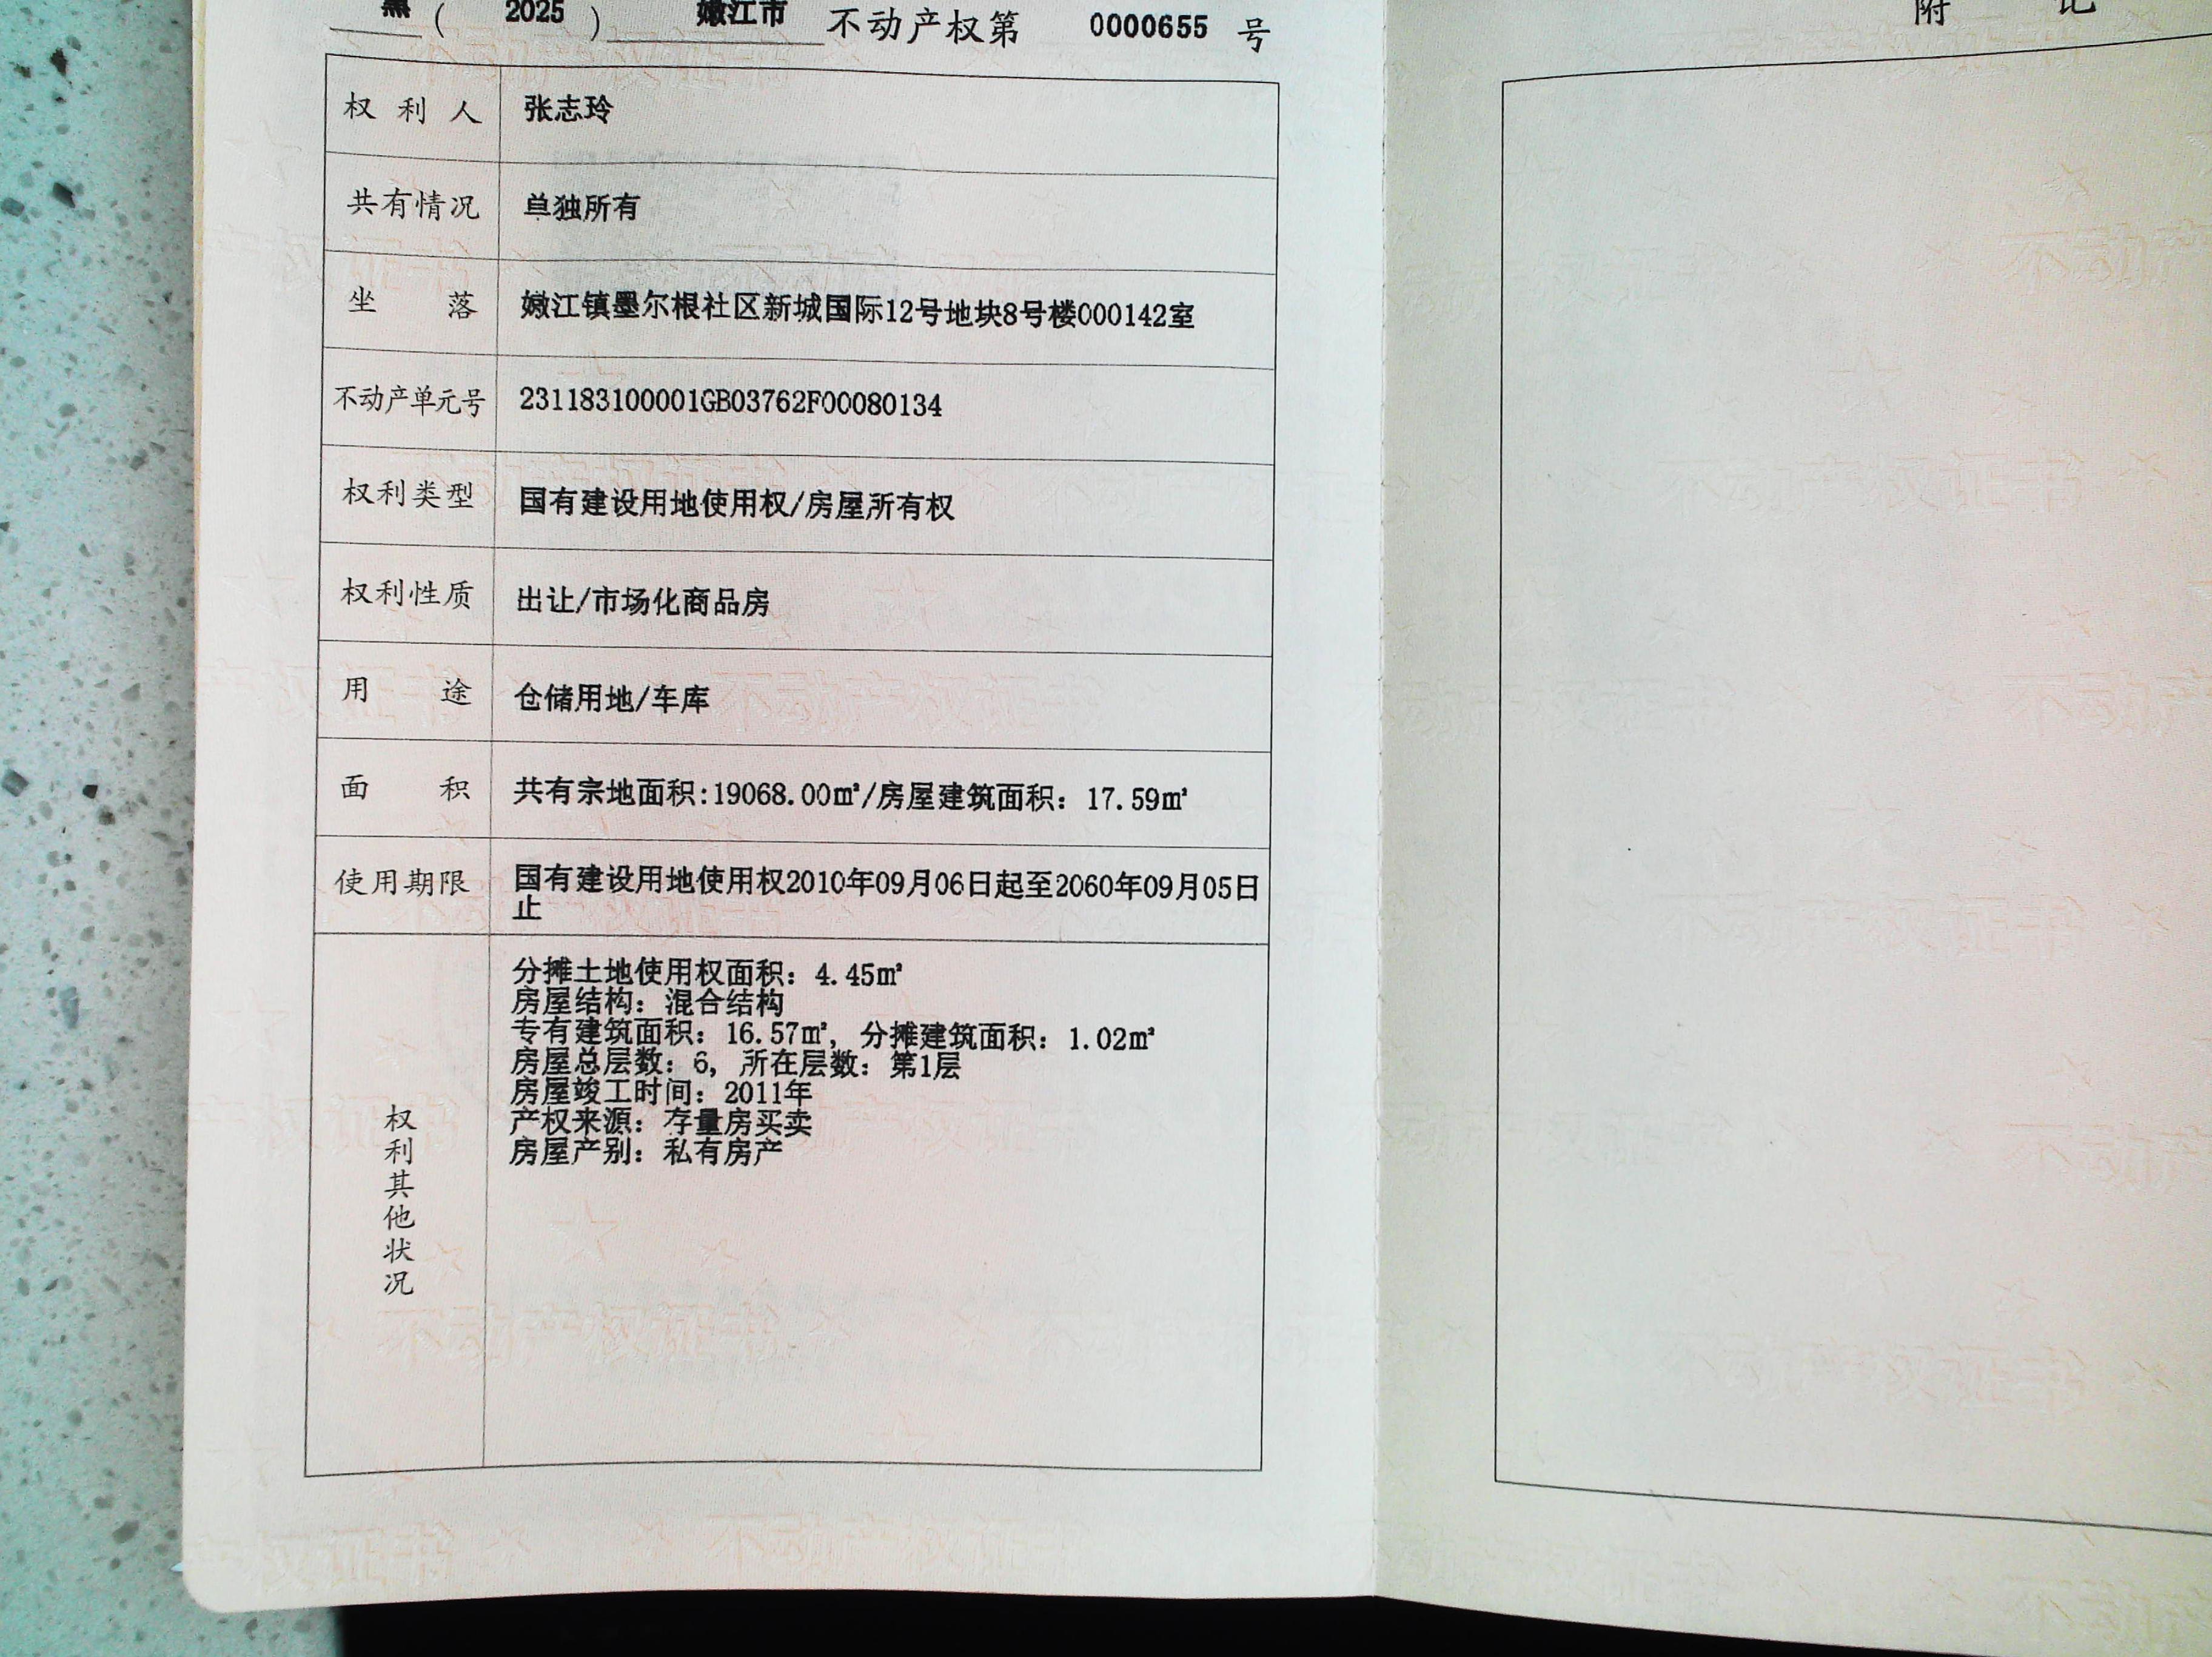 黑 ( 2025 ) 嫩江市 不动产权第 0000655 号
权利人 张志玲
共有情况 单独所有
坐落 嫩江镇墨尔根社区新城国际12号地块8号楼000142室
不动产单元号 231183100001GB03762F00080134
权利类型 国有建设用地使用权/房屋所有权
权利性质 出让/市场化商品房
用途 仓储用地/车库
面积 共有宗地面积:19068.00㎡/房屋建筑面积：17.59㎡
使用期限 国有建设用地使用权2010年09月06日起至2060年09月05日
止
权利其他状况
分摊土地使用权面积：4.45㎡
房屋结构：混合结构
专有建筑面积：16.57㎡，分摊建筑面积：1.02㎡
房屋总层数：6，所在层数：第1层
房屋竣工时间：2011年
产权来源：存量房买卖
房屋产别：私有房产
附 记